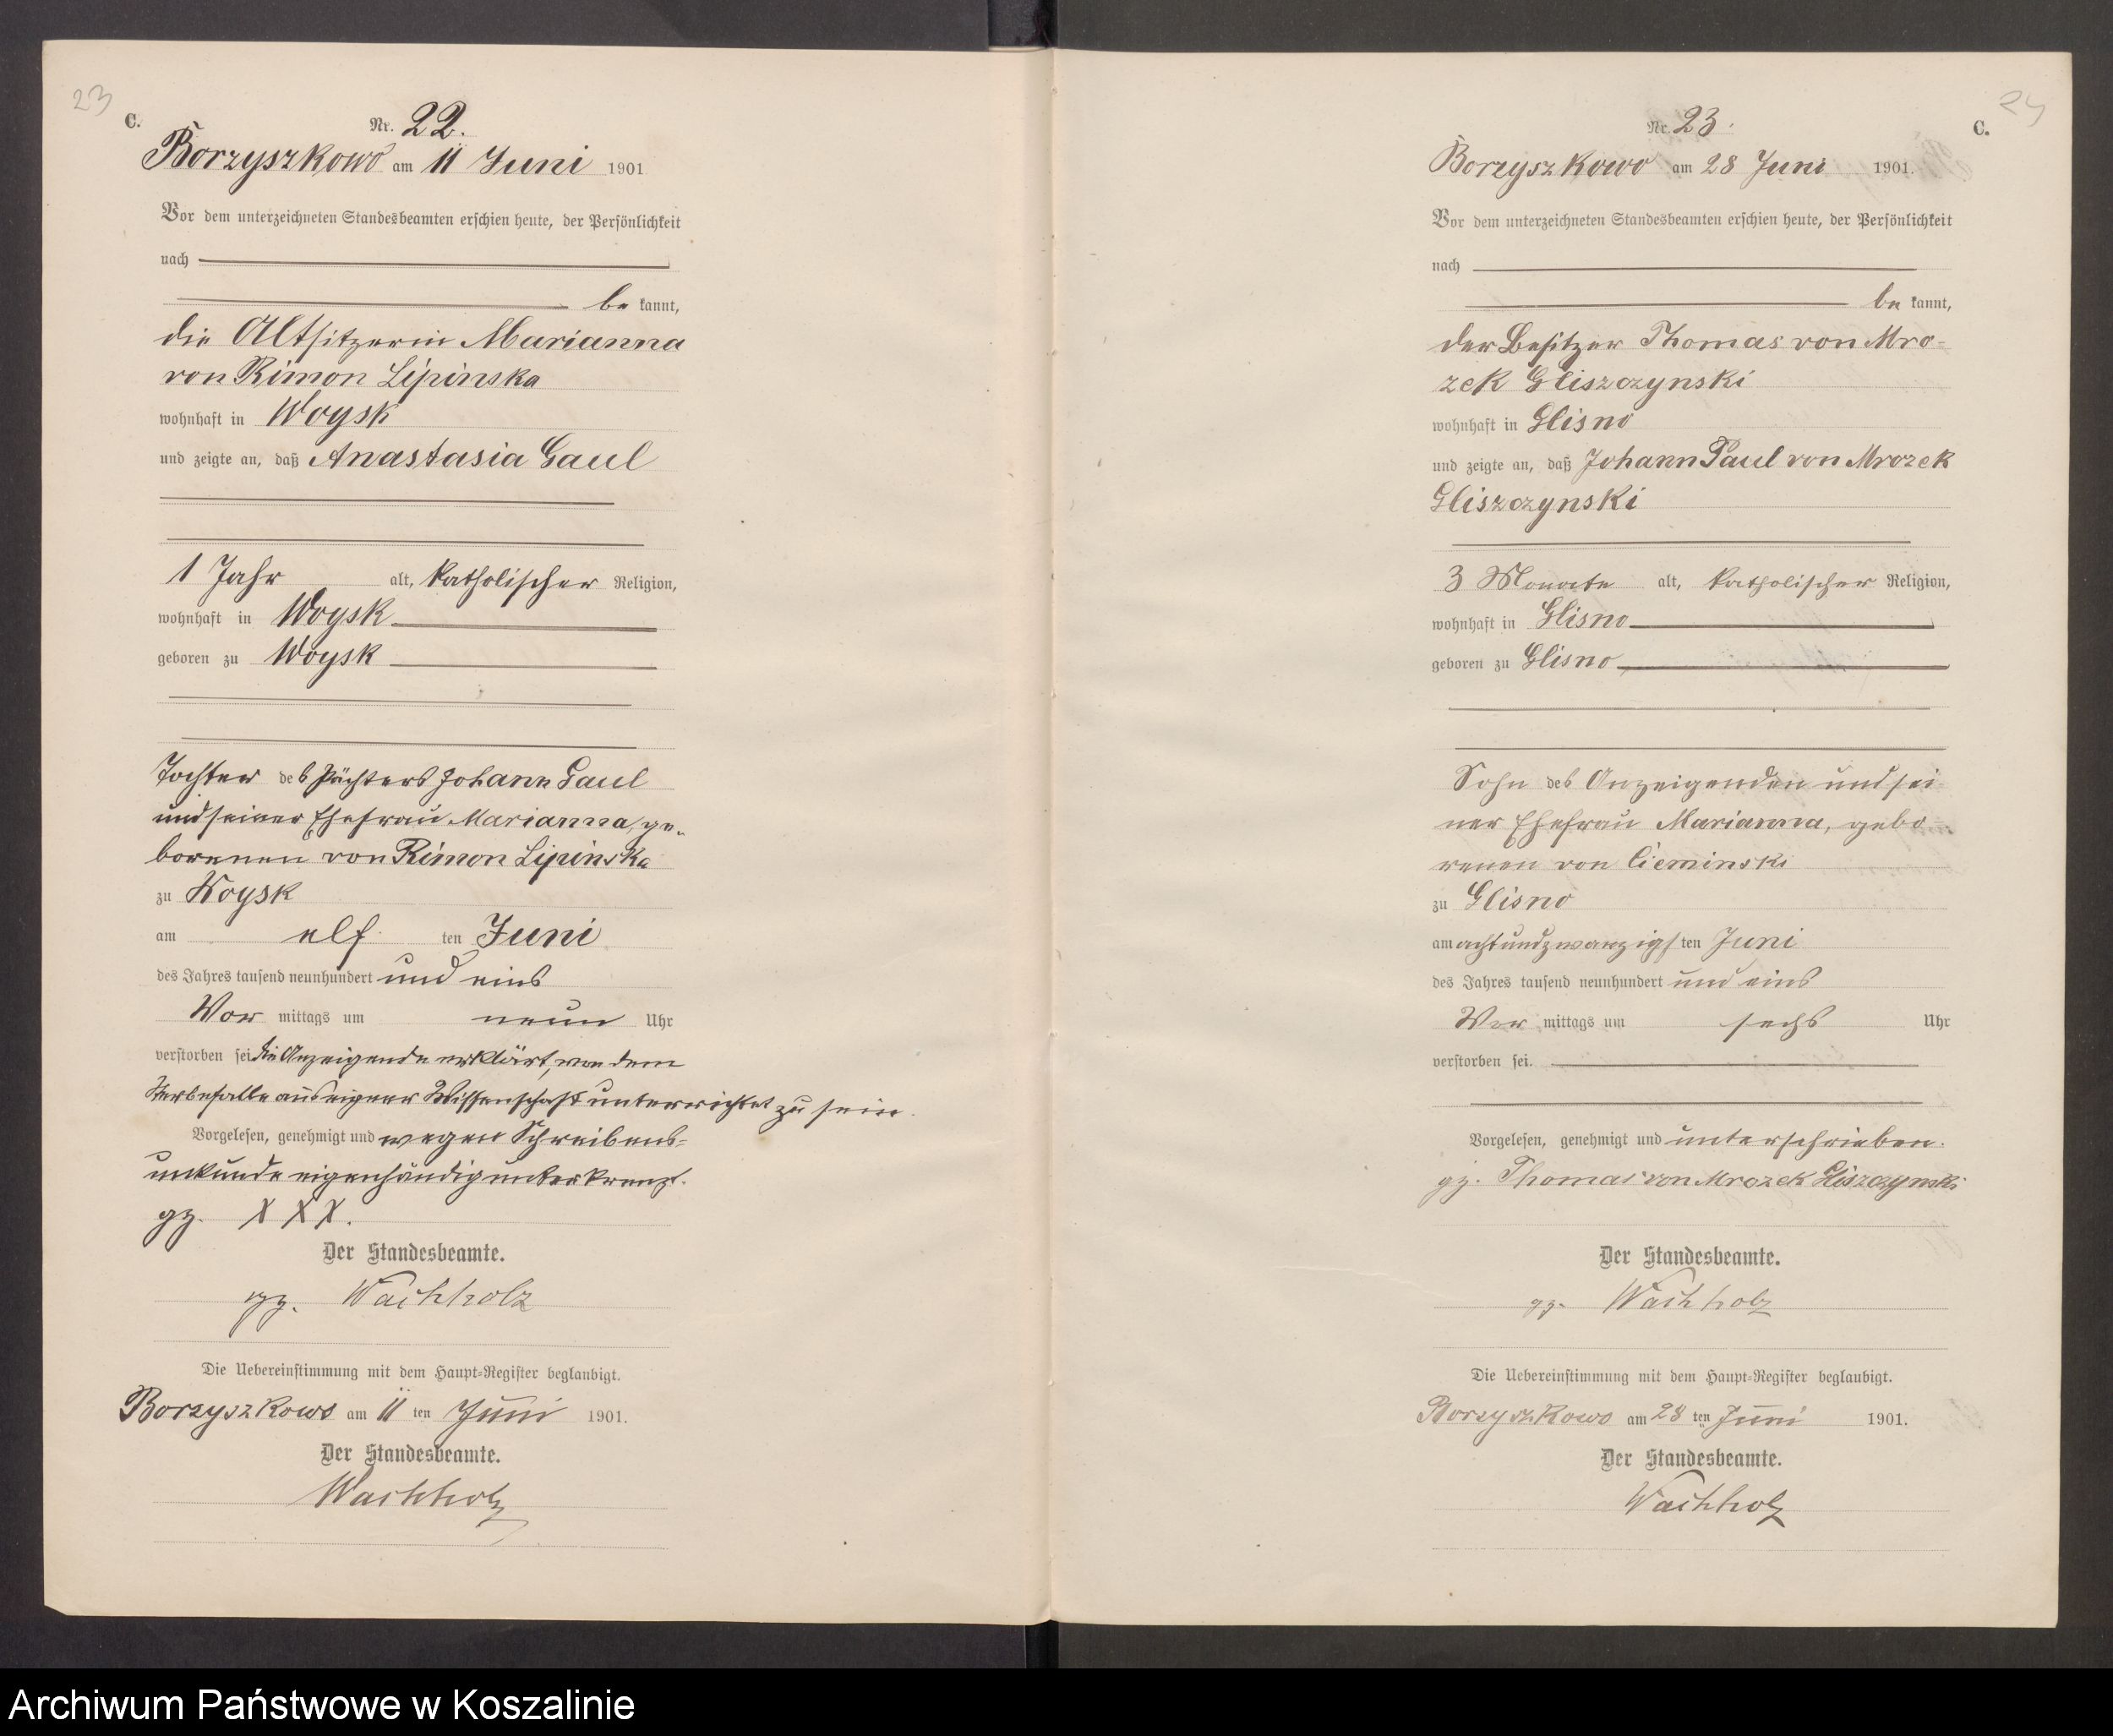 23
C.
Nr. 22.
Borzyszkowo am 11 Juni 1901
Vor dem unterzeichneten Standesbeamten erschien heute, der Persönlichkeit
nach
be kannt,
die Altsitzerin Marianna
von Rimon Lipinska
wohnhaft in Woysk
und zeigte an, daß Anastasia Gaul
1 Jahr alt, katholischer Religion,
wohnhaft in Woysk
geboren zu Woysk
Tochter des Pächters Johann Gaul
und seiner Ehefrau Marianna, ge-
borenen von Rimon Lipinska
zu Woysk
am elf ten Juni
des Jahres tausend neunhundert und eins
Vor mittags um neun Uhr
verstorben sei die Anzeigende erklärt, von dem
Sterbefalle aus eigner Wissenschaft unterrichtet zu sein.
Vorgelesen, genehmigt und wegen Schreibens-
unkunde eigenhändig unterkreuzt.
gz. X X X.
Der Standesbeamte.
gz. Wachholz
Die Uebereinstimmung mit dem Haupt-Register beglaubigt.
Borzyszkowo am 11 ten Juni 1901.
Der Standesbeamte.
Wachholz
24
C.
Nr. 23.
Borzyszkowo am 28 Juni 1901.
Vor dem unterzeichneten Standesbeamten erschien heute, der Persönlichkeit
nach
be kannt,
der Besitzer Thomas von Mro-
zek Gliszczynski
wohnhaft in Glisno
und zeigte an, daß Johann Paul von Mrozek
Gliszczynski
3 Monate alt, katholischer Religion,
wohnhaft in Glisno
geboren zu Glisno
Sohn des Anzeigenden und sei-
ner Ehefrau Marianna, gebo-
renen von Cieminski
zu Glisno
am achtundzwanzigs ten Juni
des Jahres tausend neunhundert und eins
Vor mittags um sechs Uhr
verstorben sei.
Vorgelesen, genehmigt und unterschrieben.
gz. Thomas von Mrozek Gliszczynski
Der Standesbeamte.
gz. Wachholz
Die Uebereinstimmung mit dem Haupt-Register beglaubigt.
Borzyszkowo am 28 ten Juni 1901.
Der Standesbeamte.
Wachholz
Archiwum Państwowe w Koszalinie